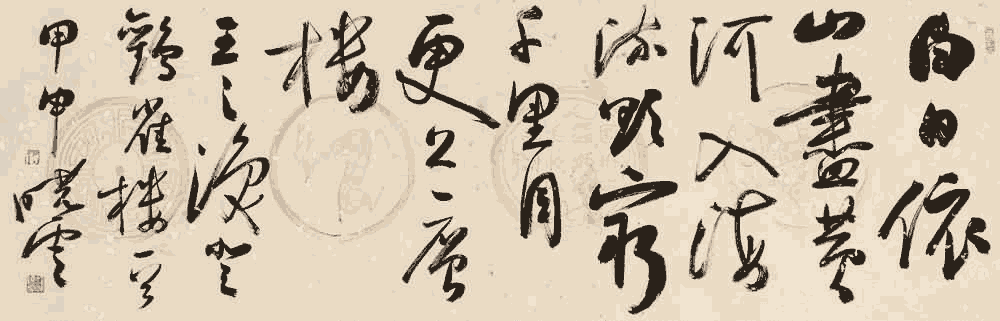 白日依
山盡黃
河入海
流欲窮
千里目
更上一層
樓
王之渙登
鸛雀樓一首
甲申曉雲